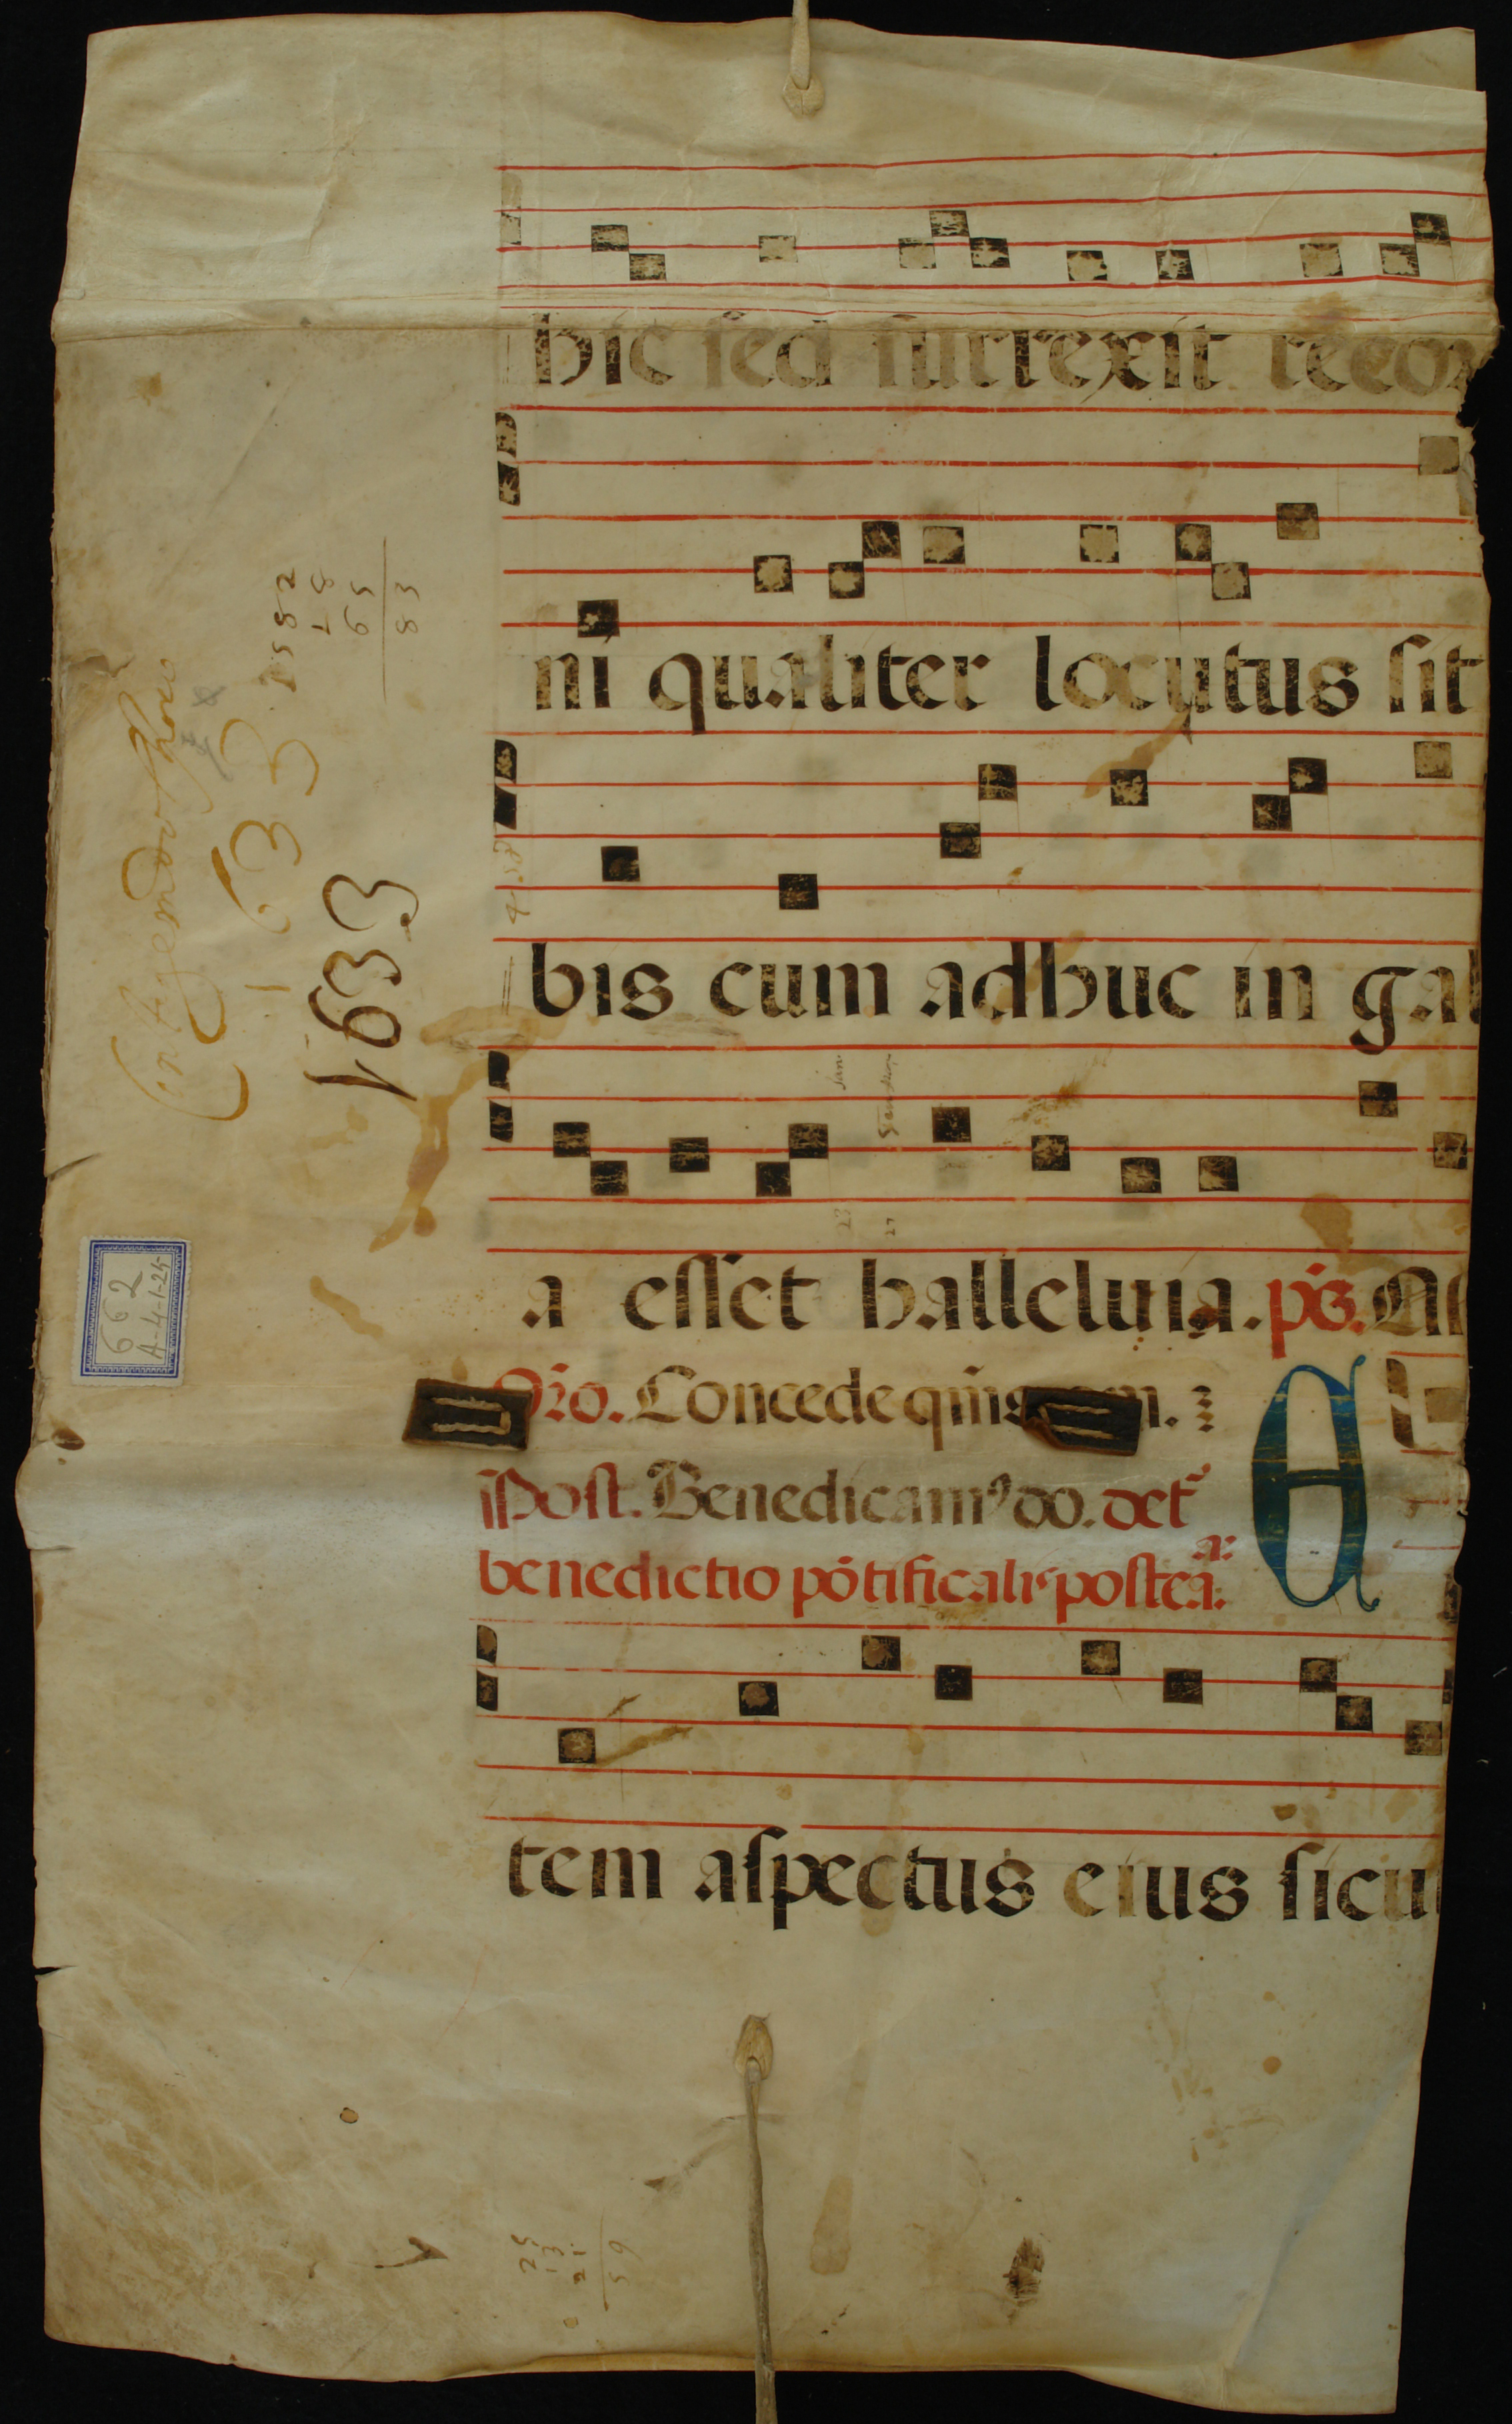 hic sed surrexit recor
ni qualiter locutus sit
bis cum adhuc in gal
a esset halleluia. ps. M
Oro. Concede qms
Post. Benedicamꝰ do. det
benedictio pōtificalis postea. an:
E
tem aspectus eius sicu
1582
87
59
38
1633
1633
662
A-4-1-25
25
13
21
59